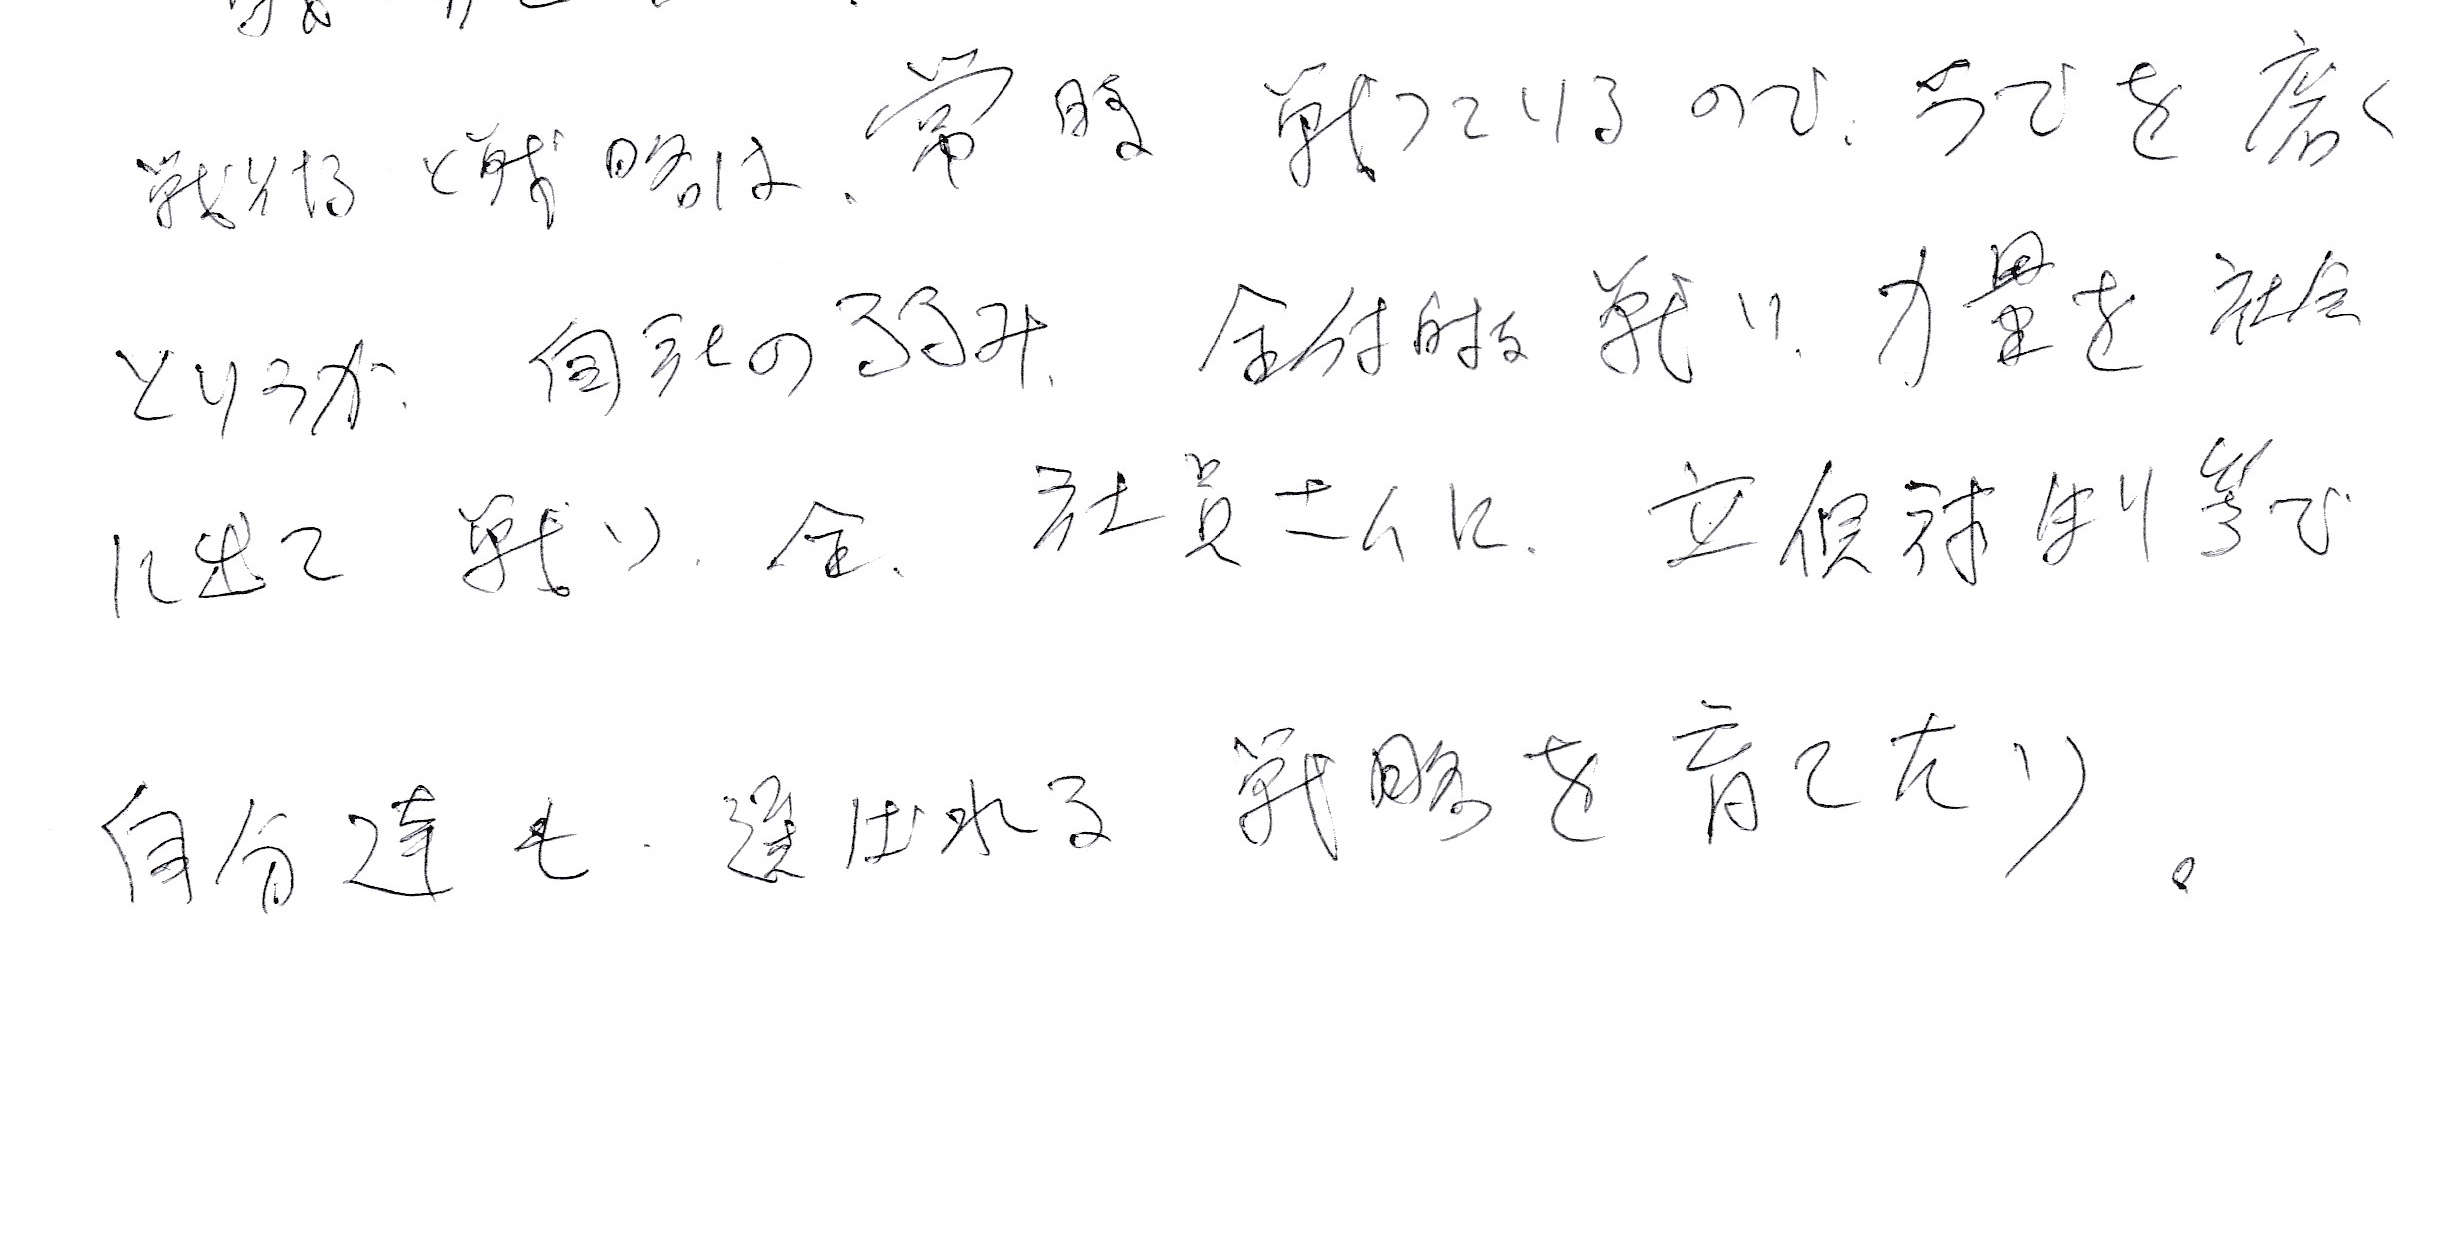 戦いすると戦略は、常時 戦っているので、うでを磨く
というか、自社の弱み、全体的な戦い、力量を社会
に出て 戦い、全、社員さんに、立候補制等で
自分達も、選ばれる 戦略を育てたい。